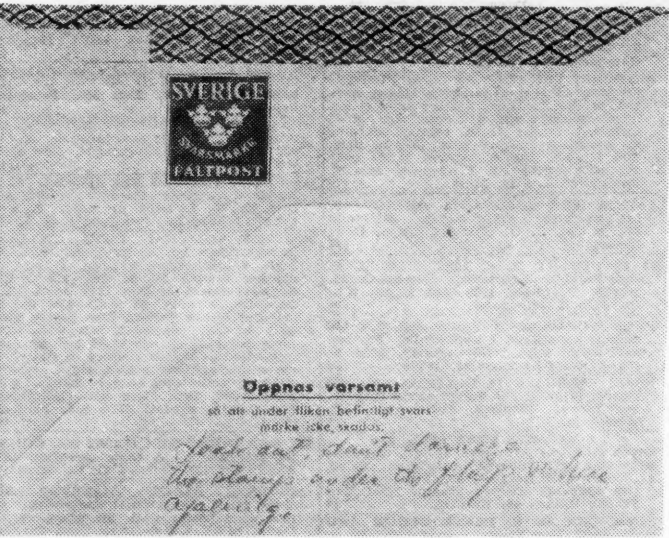 SVERIGE
SVARSMÄRKE
FÄLTPOST
Öppnas varsamt
så att under fliken befintligt svars-
märke icke skadas.
Look out, don't damage
the stamp under the flap when
opening.